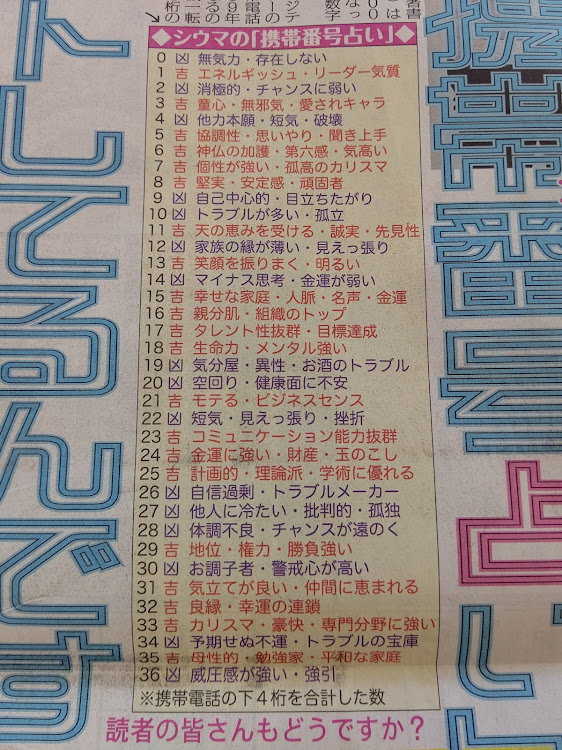 ◆シウマの「携帯番号占い」◆
0 凶 無気力・存在しない
1 吉 エネルギッシュ・リーダー気質
2 凶 消極的・チャンスに弱い
3 吉 童心・無邪気・愛されキャラ
4 凶 他力本願・短気・破壊
5 吉 協調性・思いやり・聞き上手
6 吉 神仏の加護・第六感・気高い
7 吉 個性が強い・孤高のカリスマ
8 吉 堅実・安定感・頑固者
9 凶 自己中心的・目立ちたがり
10 凶 トラブルが多い・孤立
11 吉 天の恵みを受ける・誠実・先見性
12 凶 家族の縁が薄い・見えっ張り
13 吉 笑顔を振りまく・明るい
14 凶 マイナス思考・金運が弱い
15 吉 幸せな家庭・人脈・名声・金運
16 吉 親分肌・組織のトップ
17 吉 タレント性抜群・目標達成
18 吉 生命力・メンタル強い
19 凶 気分屋・異性・お酒のトラブル
20 凶 空回り・健康面に不安
21 吉 モテる・ビジネスセンス
22 凶 短気・見えっ張り・挫折
23 吉 コミュニケーション能力抜群
24 吉 金運に強い・財産・玉のこし
25 吉 計画的・理論派・学術に優れる
26 凶 自信過剰・トラブルメーカー
27 凶 他人に冷たい・批判的・孤独
28 凶 体調不良・チャンスが遠のく
29 吉 地位・権力・勝負強い
30 凶 お調子者・警戒心が高い
31 吉 気立てが良い・仲間に恵まれる
32 吉 良縁・幸運の連鎖
33 吉 カリスマ・豪快・専門分野に強い
34 凶 予期せぬ不運・トラブルの宝庫
35 吉 母性的・勉強家・平和な家庭
36 凶 威圧感が強い・強引
※携帯電話の下4桁を合計した数
読者の皆さんもどうですか？
携帯番号占